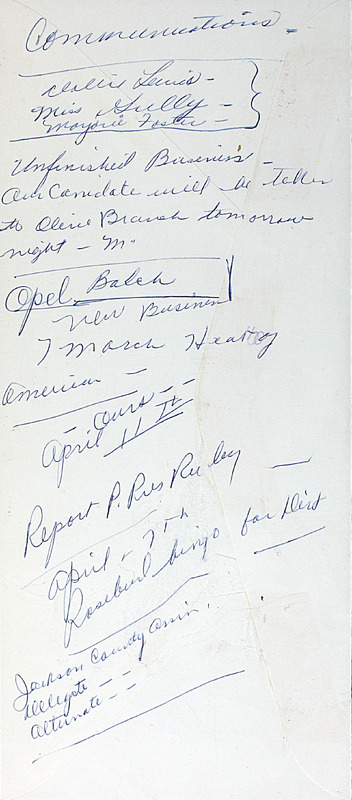 Communications -
Dollie Lewis -
Miss Gully -
Marjorie Foster -
Unfinished Business -
Our Canidate will be taken
to Olive Branch tomorrow
night - M.
Opel Balch
New Business
7 March
American -
- Ours - -
April 11th
Report P. Res
April - 7th
Rosebud bingo for Dist
Jackson County
Delegate - -
Alternate - -